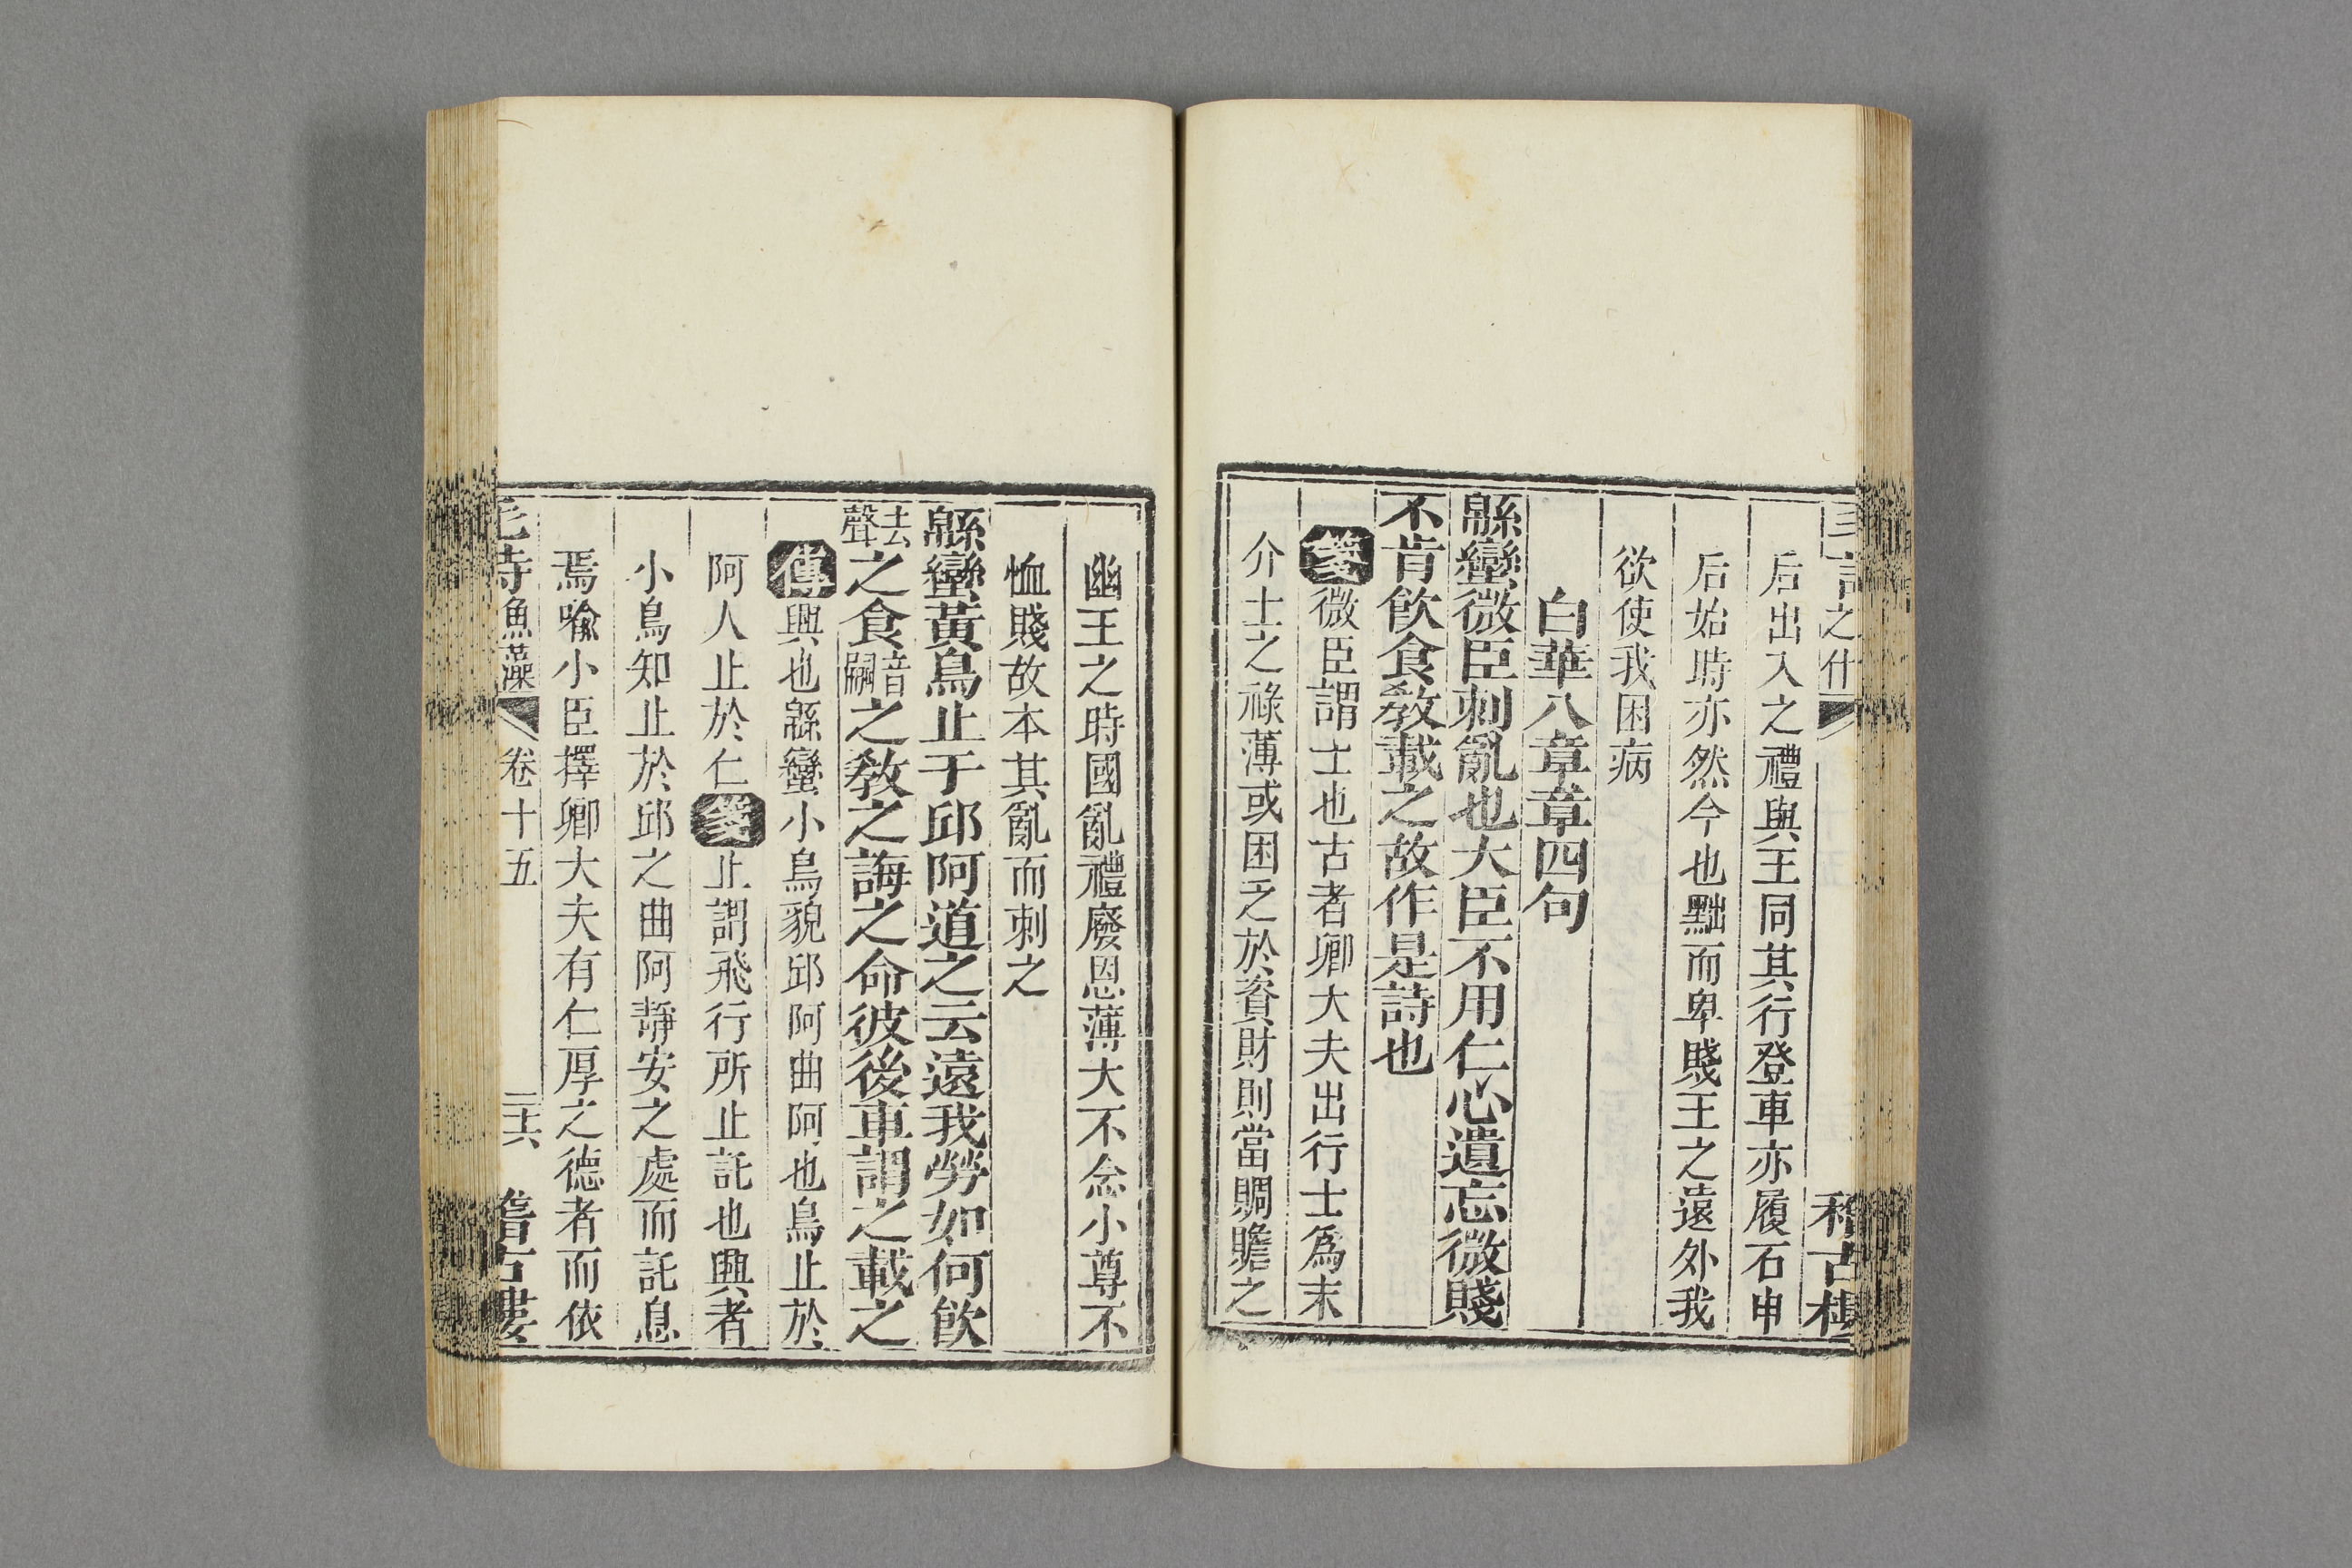 之什
稽古樓
后出入之禮與王同其行登車亦履石申
后始時亦然今也黜而卑賤王之遠外我
欲使我困病
白華八章章四句
緜蠻微臣刺亂也大臣不用仁心遺忘微賤
不肯飲食敎載之故作是詩也
箋微臣謂士也古者卿大夫出行士爲末
介士之祿薄或困乏於資財則當賙贍之
幽王之時國亂禮廢恩薄大不念小尊不
恤賤故本其亂而刺之
緜蠻黃鳥止于邱阿道之云遠我勞如何飮
去聲之食音嗣之敎之誨之命彼後車謂之載之
傳興也緜蠻小鳥貌邱阿曲阿也鳥止於
阿人止於仁箋止謂飛行所止託也興者
小鳥知止於邱之曲阿靜安之處而託息
焉喻小臣擇卿大夫有仁厚之德者而依
毛詩魚藻 卷十五 二十六 稽古樓